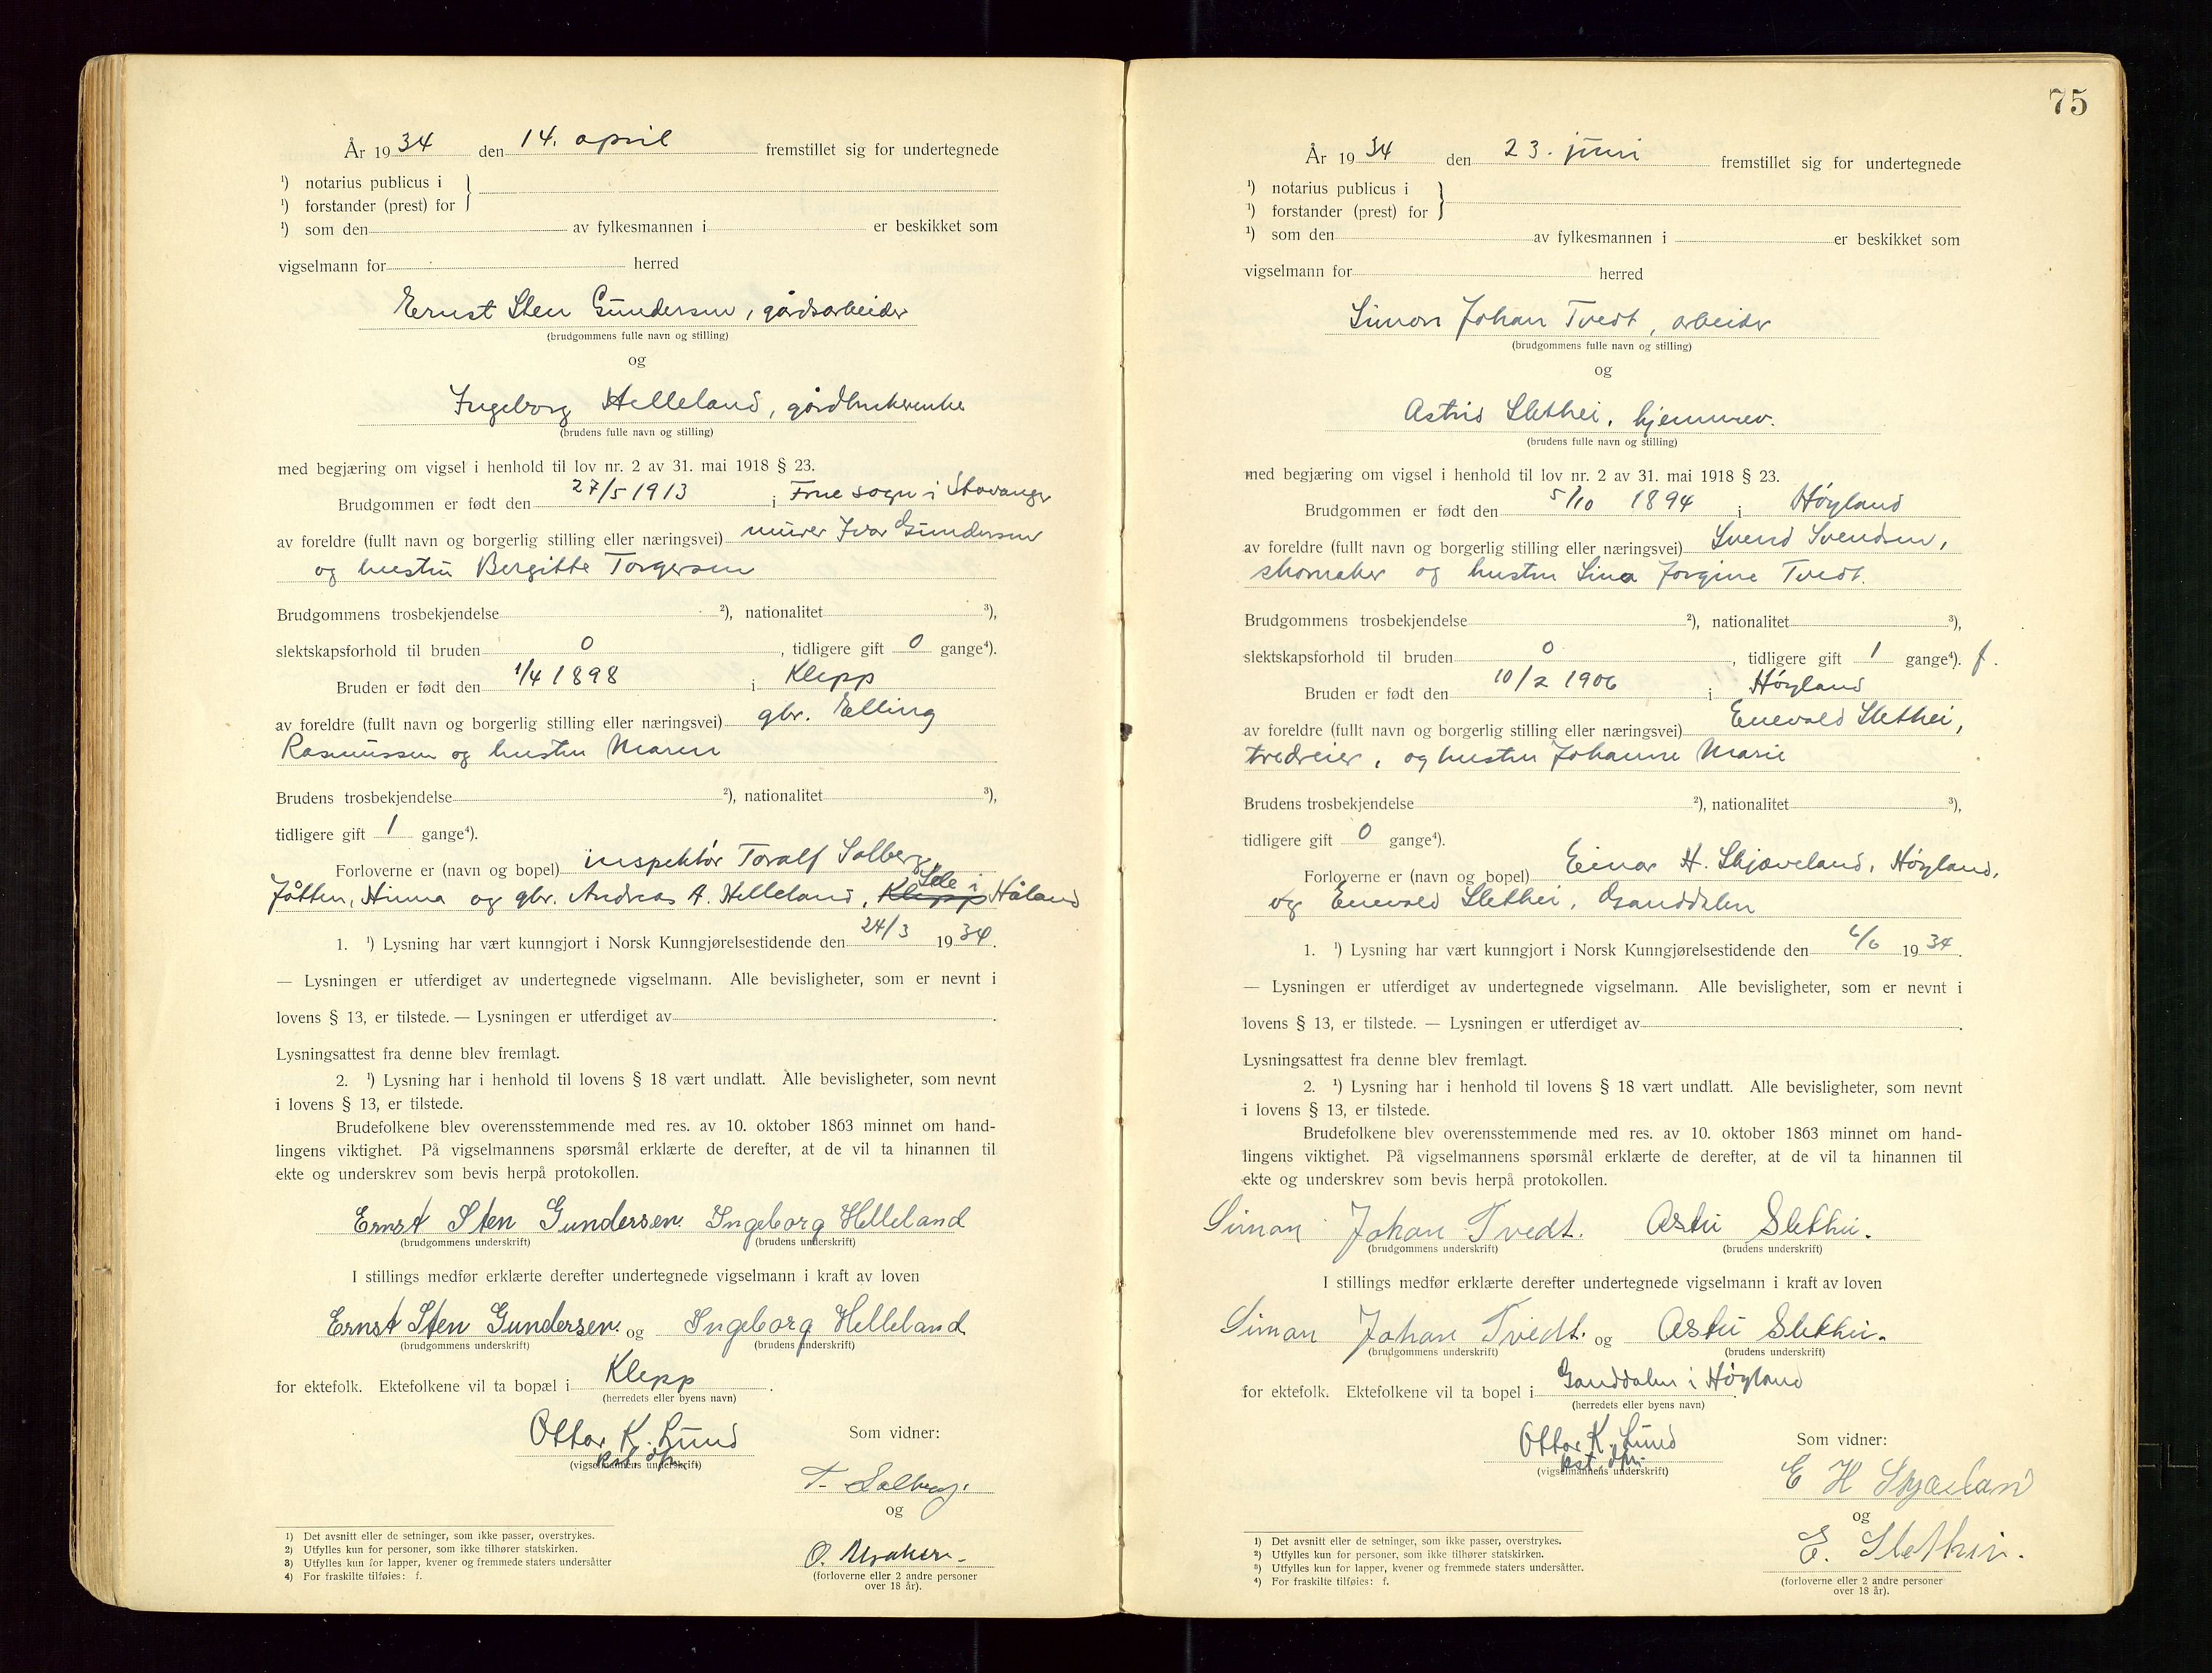 År 1934 den 14. april fremstillet sig for undertegnede
¹) notarius publicus i
¹) forstander (prest) for
¹) som den av fylkesmannen i er beskikket som
vigselmann for herred
Ernst Sten Gundersen, gårdsarbeider
(brudgommens fulle navn og stilling)
og
Ingeborg Helleland, gårdbrukerenke
(brudens fulle navn og stilling)
med begjæring om vigsel i henhold til lov nr. 2 av 31. mai 1918 § 23.
Brudgommen er født den 27/5 1913 i Frue sogn i Stavanger
av foreldre (fullt navn og borgerlig stilling eller næringsvei) murer Ivar Gundersen
og hustru Bergitte Torgersen
Brudgommens trosbekjendelse ²), nationalitet ³),
slektskapsforhold til bruden 0, tidligere gift 0 gange⁴).
Bruden er født den 1/4 1898 i Klepp
av foreldre (fullt navn og borgerlig stilling eller næringsvei) gbr. Elling
Rasmussen og hustru Maren
Brudens trosbekjendelse ²), nationalitet ³),
tidligere gift 1 gange⁴).
Forloverne er (navn og bopel) inspektør Toralf Salberg,
Jåtten, Hinna og gbr. Andreas A. Helleland, Klepp Sole i Håland
1. ¹) Lysning har vært kunngjort i Norsk Kunngjørelsestidende den 24/3 1934.
— Lysningen er utferdiget av undertegnede vigselmann. Alle bevisligheter, som er nevnt i
lovens § 13, er tilstede. — Lysningen er utferdiget av .
Lysningsattest fra denne blev fremlagt.
2. ¹) Lysning har i henhold til lovens § 18 vært undlatt. Alle bevisligheter, som nevnt
i lovens § 13, er tilstede.
Brudefolkene blev overensstemmende med res. av 10. oktober 1863 minnet om hand-
lingens viktighet. På vigselmannens spørsmål erklærte de derefter, at de vil ta hinannen til
ekte og underskrev som bevis herpå protokollen.
Ernst Sten Gundersen. Ingeborg Helleland
(brudgommens underskrift) (brudens underskrift)
I stillings medfør erklærte derefter undertegnede vigselmann i kraft av loven
Ernst Sten Gundersen. og Ingeborg Helleland
(brudgommens underskrift) (brudens underskrift)
for ektefolk. Ektefolkene vil ta bopæl i Klepp.
(herredets eller byens navn)
Ottar K. Lund
kst. dfm.
(vigselmannens underskrift)
Som vidner:
T. Salberg.
og
(forloverne eller 2 andre personer
over 18 år).
1) Det avsnitt eller de setninger, som ikke passer, overstrykes.
2) Utfylles kun for personer, som ikke tilhører statskirken.
3) Utfylles kun for lapper, kvener og fremmede staters undersåtter
4) For fraskilte tilføies: f.
75
År 1934 den 23. juni fremstillet sig for undertegnede
¹) notarius publicus i
¹) forstander (prest) for
¹) som den av fylkesmannen i er beskikket som
vigselmann for herred
Simon Johan Tvedt, arbeider
(brudgommens fulle navn og stilling)
og
Astrid Slethei, hjemmev.
(brudens fulle navn og stilling)
med begjæring om vigsel i henhold til lov nr. 2 av 31. mai 1918 § 23.
Brudgommen er født den 5/10 1894 i Høyland
av foreldre (fullt navn og borgerlig stilling eller næringsvei) Svend Svendsen,
skomaker og hustru Sina Jorgine Tvedt.
Brudgommens trosbekjendelse ²), nationalitet ³),
slektskapsforhold til bruden 0, tidligere gift 1 gange⁴). f.
Bruden er født den 10/2 1906 i Høyland
av foreldre (fullt navn og borgerlig stilling eller næringsvei) Enevald Slethei,
tredreier, og hustru Johanne Marie
Brudens trosbekjendelse ²), nationalitet ³),
tidligere gift 0 gange⁴).
Forloverne er (navn og bopel) Einar H. Skjæveland, Høyland,
og Enevald Slethei, Ganddalen
1. ¹) Lysning har vært kunngjort i Norsk Kunngjørelsestidende den 6/6 1934.
— Lysningen er utferdiget av undertegnede vigselmann. Alle bevisligheter, som er nevnt i
lovens § 13, er tilstede. — Lysningen er utferdiget av .
Lysningsattest fra denne blev fremlagt.
2. ¹) Lysning har i henhold til lovens § 18 vært undlatt. Alle bevisligheter, som nevnt
i lovens § 13, er tilstede.
Brudefolkene blev overensstemmende med res. av 10. oktober 1863 minnet om hand-
lingens viktighet. På vigselmannens spørsmål erklærte de derefter, at de vil ta hinannen til
ekte og underskrev som bevis herpå protokollen.
Simon Johan Tvedt. Astri Slethei.
(brudgommens underskrift) (brudens underskrift)
I stillings medfør erklærte derefter undertegnede vigselmann i kraft av loven
Simon Johan Tvedt. og Astri Slethei.
(brudgommens underskrift) (brudens underskrift)
for ektefolk. Ektefolkene vil ta bopel i Ganddalen i Høyland
(herredets eller byens navn)
Ottar K. Lund
kst. dfm.
(vigselmannens underskrift)
Som vidner:
E H Skjæveland
og
E. Slethei.
(forloverne eller 2 andre personer
over 18 år).
1) Det avsnitt eller de setninger, som ikke passer, overstrykes.
2) Utfylles kun for personer, som ikke tilhører statskirken.
3) Utfylles kun for lapper, kvener og fremmede staters undersåtter.
4) For fraskilte tilføies: f.